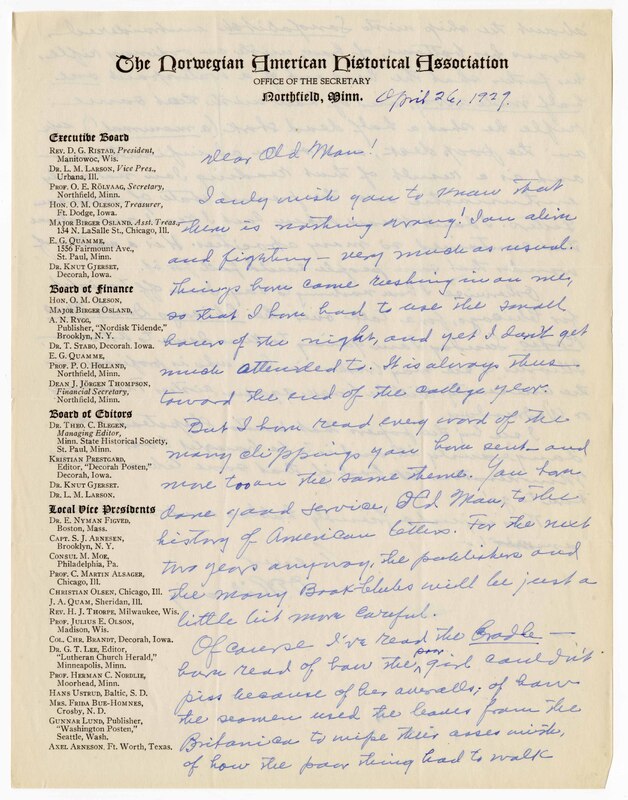 The Norwegian American Historical Association
OFFICE OF THE SECRETARY
Northfield, Minn.
April 26, 1929.
Executive Board
REV. D. G. RISTAD, President,
Manitowoc, Wis.
DR. L. M. LARSON, Vice Pres.,
Urbana, Ill.
PROF. O. E. RÖLVAAG, Secretary,
Northfield, Minn.
HON. O. M. OLESON, Treasurer,
Ft. Dodge, Iowa.
MAJOR BIRGER OSLAND, Asst. Treas.,
134 N. LaSalle St., Chicago, Ill.
E. G. QUAMME,
1556 Fairmount Ave.,
St. Paul, Minn.
DR. KNUT GJERSET,
Decorah, Iowa.
Board of Finance
HON. O. M. OLESON,
MAJOR BIRGER OSLAND,
A. N. RYGG,
Publisher, "Nordisk Tidende,"
Brooklyn, N. Y.
DR. T. STABO, Decorah, Iowa.
E. G. QUAMME,
PROF. P. O. HOLLAND,
Northfield, Minn.
DEAN J. JÖRGEN THOMPSON,
Financial Secretary,
Northfield, Minn.
Board of Editors
DR. THEO. C. BLEGEN,
Managing Editor,
Minn. State Historical Society,
St. Paul, Minn.
KRISTIAN PRESTGARD,
Editor, "Decorah Posten,"
Decorah, Iowa.
DR. KNUT GJERSET.
DR. L. M. LARSON.
Local Vice Presidents
DR. E. NYMAN FIGVED,
Boston, Mass.
CAPT. S. J. ARNESEN,
Brooklyn, N. Y.
CONSUL M. MOE,
Philadelphia, Pa.
PROF. C. MARTIN ALSAGER,
Chicago, Ill.
CHRISTIAN OLSEN, Chicago, Ill.
J. A. QUAM, Sheridan, Ill.
REV. H. J. THORPE, Milwaukee, Wis.
PROF. JULIUS E. OLSON,
Madison, Wis.
COL. CHR. BRANDT, Decorah, Iowa.
DR. G. T. LEE, Editor,
"Lutheran Church Herald,"
Minneapolis, Minn.
PROF. HERMAN C. NORDLIE,
Moorhead, Minn.
HANS USTRUD, Baltic, S. D.
MRS. FRIDA BUE-HOMNES,
Crosby, N. D.
GUNNAR LUND, Publisher,
"Washington Posten,"
Seattle, Wash.
AXEL ARNESON. Ft. Worth, Texas.
Dear Old Man!
I only wish you to know that
there is nothing wrong! I am alive
and fighting – very much as usual.
Things have come rushing in on me,
so that I have had to use the small
hours of the night, and yet I don't get
much attended to. It is always thus
toward the end of the college year.
But I have read every word of the
many clippings you have sent – and
more too on the same theme. You have
done good service, Old Man, to the
history of American letters. For the next
two years anyway, the publishers and
the many Book Clubs will be just a
little bit more careful.
Of course I've read the Cradle –
have read of how the poor girl couldn't
piss because of her overalls; of how
the seamen used the leaves from the
Britanica to wipe their asses with,
of how the poor thing had to walk